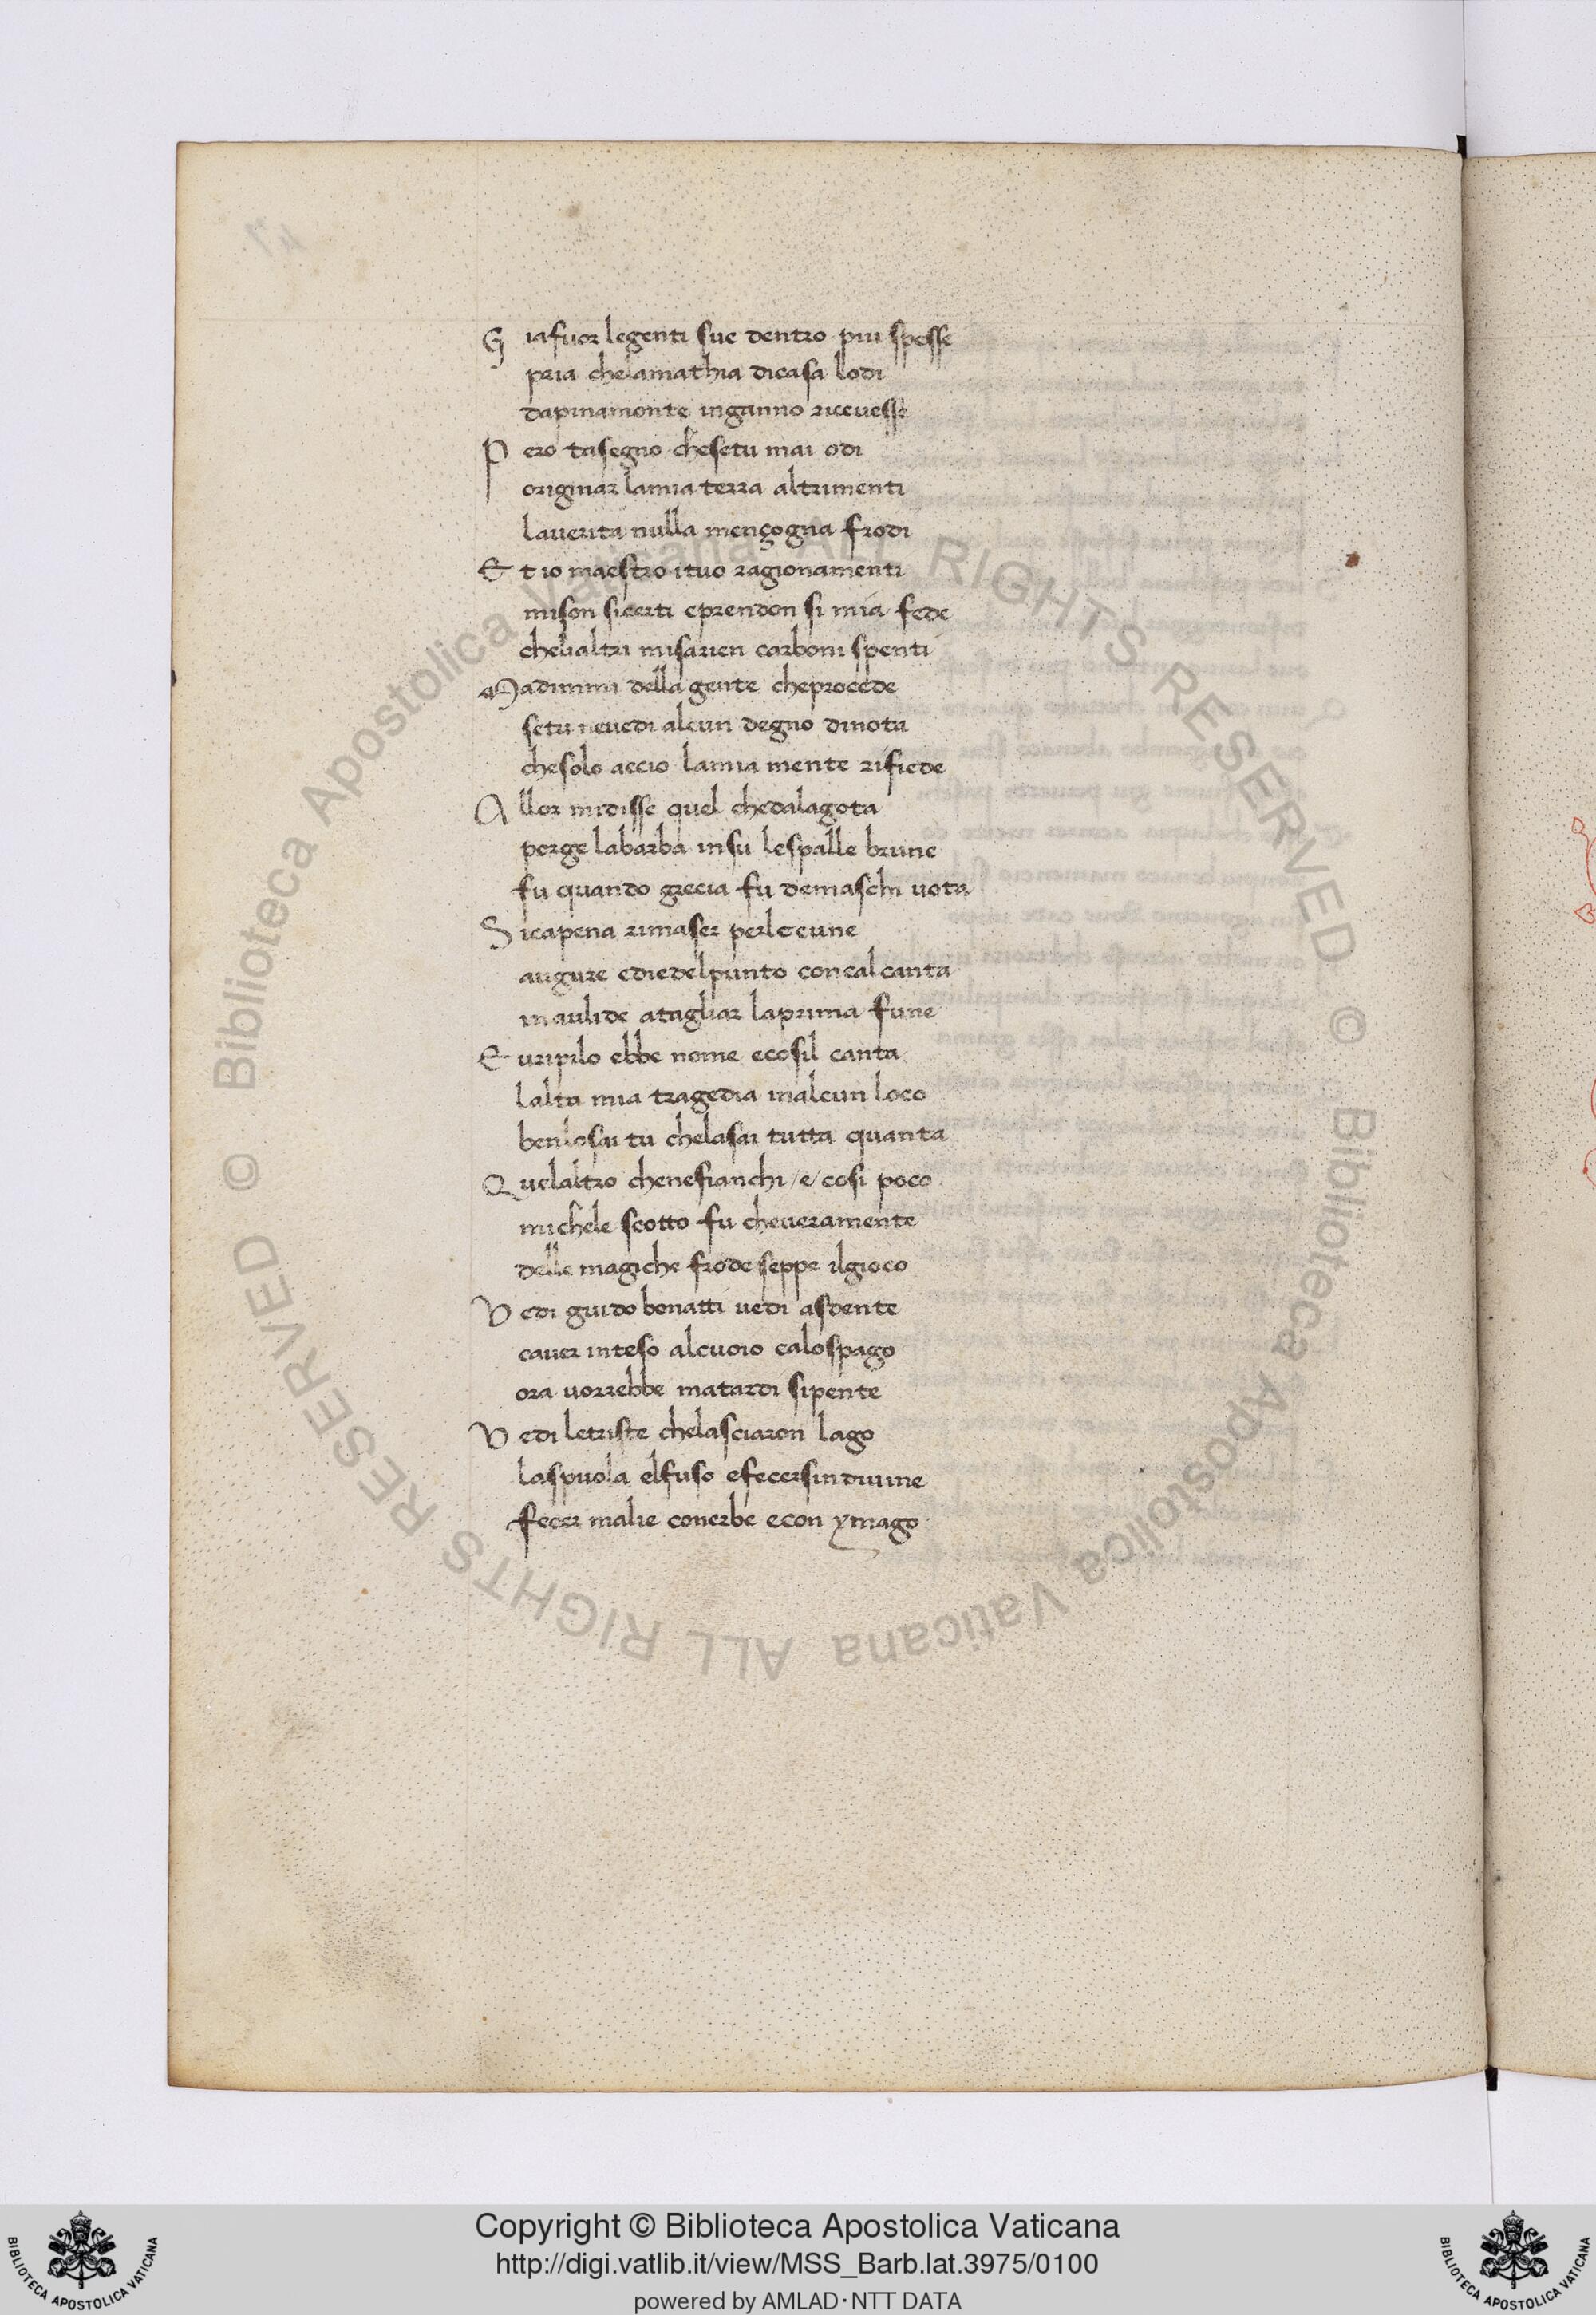 G iafuor legenti sue dentro piu spesse
pria chelamathia dicasa lodi
dapinamonte inganno ricevesse
P ero tasegno chesetu mai odi
originar lamia terra altrimenti
laverita nulla mençogna frodi
E t io maestro ituo ragionamenti
mison sicerti eprendon si mia fede
chelialtri misarien carboni spenti
Madimmi della gente cheprocede
setu nevedi alcun degno dinota
chesolo accio lamia mente rifiede
A llor midisse quel chedalagota
porge labarba insu lespalle brune
fu quando grecia fu demaschi vota
S icapena rimaser perlecune
augure ediedelpunto concalcanta
inaulide atagliar laprima fune
E uripilo ebbe nome ecosil canta
lalta mia tragedia inalcun loco
benlosai tu chelasai tutta quanta
Q uelaltro chenefianchi /e/ cosi poco
michele scotto fu cheveramente
delle magiche frode seppe ilgioco
V edi guido bonatti vedi asdente
caver inteso alcuoio calospago
ora vorrebbe matardi sipente
V edi letriste chelasciaron lago
laspuola elfuso efecersindivine
fecer malie conerbe econ ymago
Copyright © Biblioteca Apostolica Vaticana
http://digi.vatlib.it/view/MSS_Barb.lat.3975/0100
powered by AMLAD·NTT DATA
BIBLIOTECA APOSTOLICA VATICANA
BIBLIOTECA APOSTOLICA VATICANA
© Biblioteca Apostolica Vaticana ALL RIGHTS RESERVED
© Biblioteca Apostolica Vaticana ALL RIGHTS RESERVED